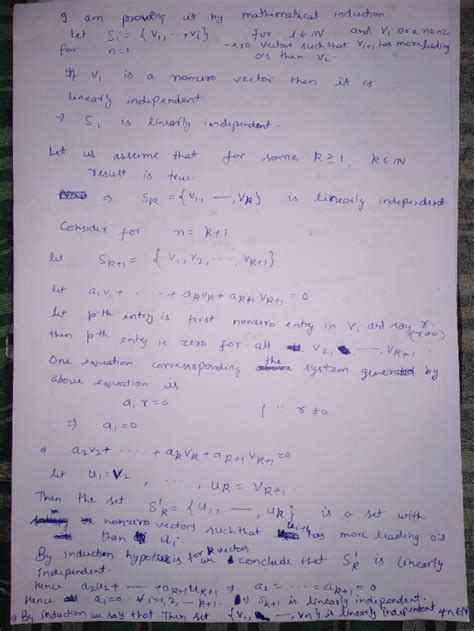 I am proving it by mathematical induction.
Let Si = {v1, ..., vi} for i ∈ IN and Vi are nonz
-ero vectors such that Vi+1 has more leading
for n=1 0's then Vi.
If V1 is a nonzero vector then it is
linearly independent.
⇒ S1 is linearly independent.
Let us assume that for some k ≥ 1, k ∈ IN
result is true.
⇒ Sk = {V1, —, Vk} is linearly independent.
Consider for n = k+1
let Sk+1 = {V1, V2, ..., Vk+1}
let a1V1 + ... + akVk + ak+1 Vk+1 = 0
let p-th entry is first nonzero entry in V1 and say r. (r≠0)
then p-th entry is zero for all V2, —, Vk+1.
One equation correseponding the system generated by
above equation is
a1 r = 0 (∵ r ≠ 0
⇒ a1 = 0
⇒ a2V2 + ... + akVk + ak+1 Vk+1 = 0
let U1 = V2, ..., Uk = Vk+1
Then the set S'k = {U1, —, Uk} is a set with
nonzero vectors such that Ui+1 has more leading 0's
than Ui.
By induction hypothesis for k vectors we conclude that S'k is linearly
Independent.
Hence a2U2 + — + ak+1 Uk+1 ⇒ a2 = ... = ak+1 = 0
Hence ai = 0 ∀ i = 1, 2, — k+1. ⇒ Sk+1 is linearly independent.
⇒ By induction we say that Then set {V1, —, Vn} is linearly independent ∀ n ∈ IN